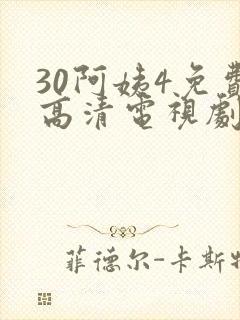 30阿姨4免費
高清電視劇
菲德尔-卡斯特